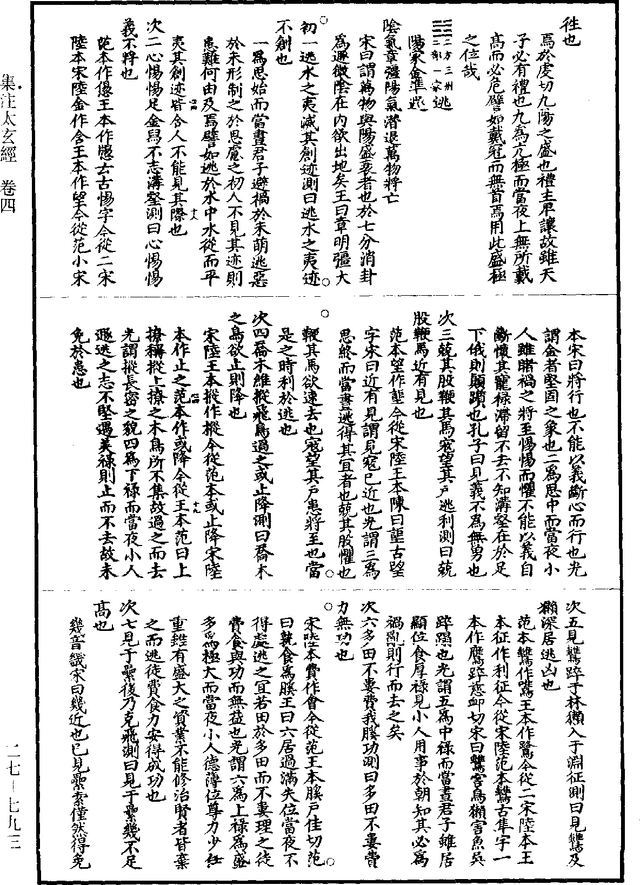 往也
焉於虔切九陽之盛也禮主卑讓故雖天
子必有禮也九為亢極而當夜上無所戴
高而必危譬如戴冠而無首焉用此盛極
之位哉
逃
陽家金準遯
陰氣章彊陽氣潛退萬物將亡
宋曰謂萬物與陽盛衰者也於七分消卦
為遯微陰在内欲出地矣王曰章明彊大
初一逃水之夷滅其創迹測曰逃水之夷迹
不創也
一為思始而當晝君子避禍於未萌逃惡
於未形制之於思慮之初人不見其迹則
患難何由及焉譬如逃於水中水從而平
夷其創迹皆合人不能見其隙也
次二心惕惕足金舄不志溝壑測曰心惕惕
義不將也
范本作偒王本作慇去古惕字今從二宋
陸本宋陸金作含王本作望今從范小宋
本宋曰將行也不能以義斷心而行也光
謂金者堅固之象也二為思中而當夜小
人雖睹禍之將至惕惕而懼不能以義自
斷懷其寵祿滯留不去不知溝壑在於足
下俄則顛躓也孔子曰見義不為無勇也
次三兢其股鞭其馬寇望其戶逃利測曰兢
股鞭馬近有見也
范本望作𡔈今從宋陸王本陳曰𡔈古望
字宋曰近有見謂見寇已近也光謂三為
思終而當晝逃得其宜者也兢其股懼也
鞭其馬欲速去也寇望其戶患將至也當
是之時利於逃也
次四喬木維摐飛鳥過之或止降測曰喬木
之鳥欲止則降也
宋陸王本摐作樅今從范本或止降宋陸
本作止之范本作或降今從王本范曰上
撩稱摐上撩之木鳥所不集故過之而去
光謂摐長密之貌四為下祿而當夜小人
遯逃之志不堅遇美祿則止而不去故未
免於患也
次五見鷕踤于林獺入于淵征測曰見鷕及
獺深居逃凶也
范本鷕作𪆫王本作鷖今從二宋陸本王
本征作利征今從宋陸范本鷕古隼字一
本作鷹踤慈卹切宋曰鷕害鳥獺害魚吴
踤蹋也光謂五為中祿而當晝君子雖居
顯位食厚祿見小人用事於朝知其必為
禍亂則行而去之矣
次六多田不婁費我膎功測曰多田不婁費
力無功也
宋陸本費作會今從范王本膎戶佳切范
曰熟食為膎王曰六居過滿失位當夜不
得處逃之宜若田於多田而不婁理之徒
費食與功而無益也光謂六為上祿為盛
多為極大而當夜小人德薄位尊力少任
重雖有盛大之資業不能修治賢者皆棄
之而逃徒費食力安得成功也
次七見于纍後乃克飛測曰見于纍幾不足
高也
幾音譏宋曰幾近也已見纍索僅然得免
集注太玄經 卷四
二七－七九三